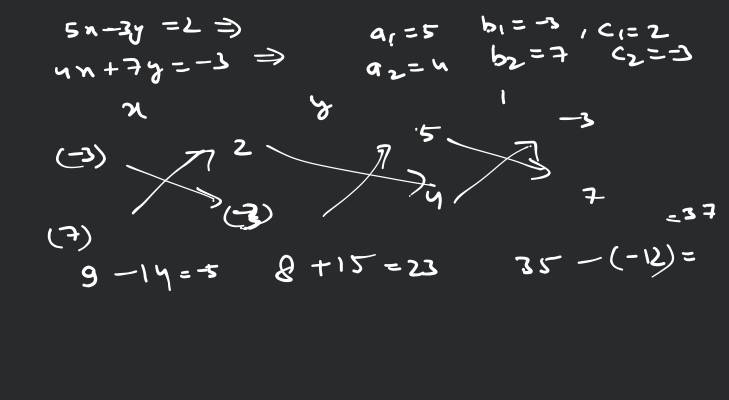 5x-3y =2 ⇒ a₁=5 b₁=-3 , c₁=2
4x+7y=-3 ⇒ a₂=4 b₂=7 c₂=-3
x y 1
(-3) 2 5 -3
(7) (-3) 4 7
9 -14=-5 8 +15=23 35 -(-12)= =37